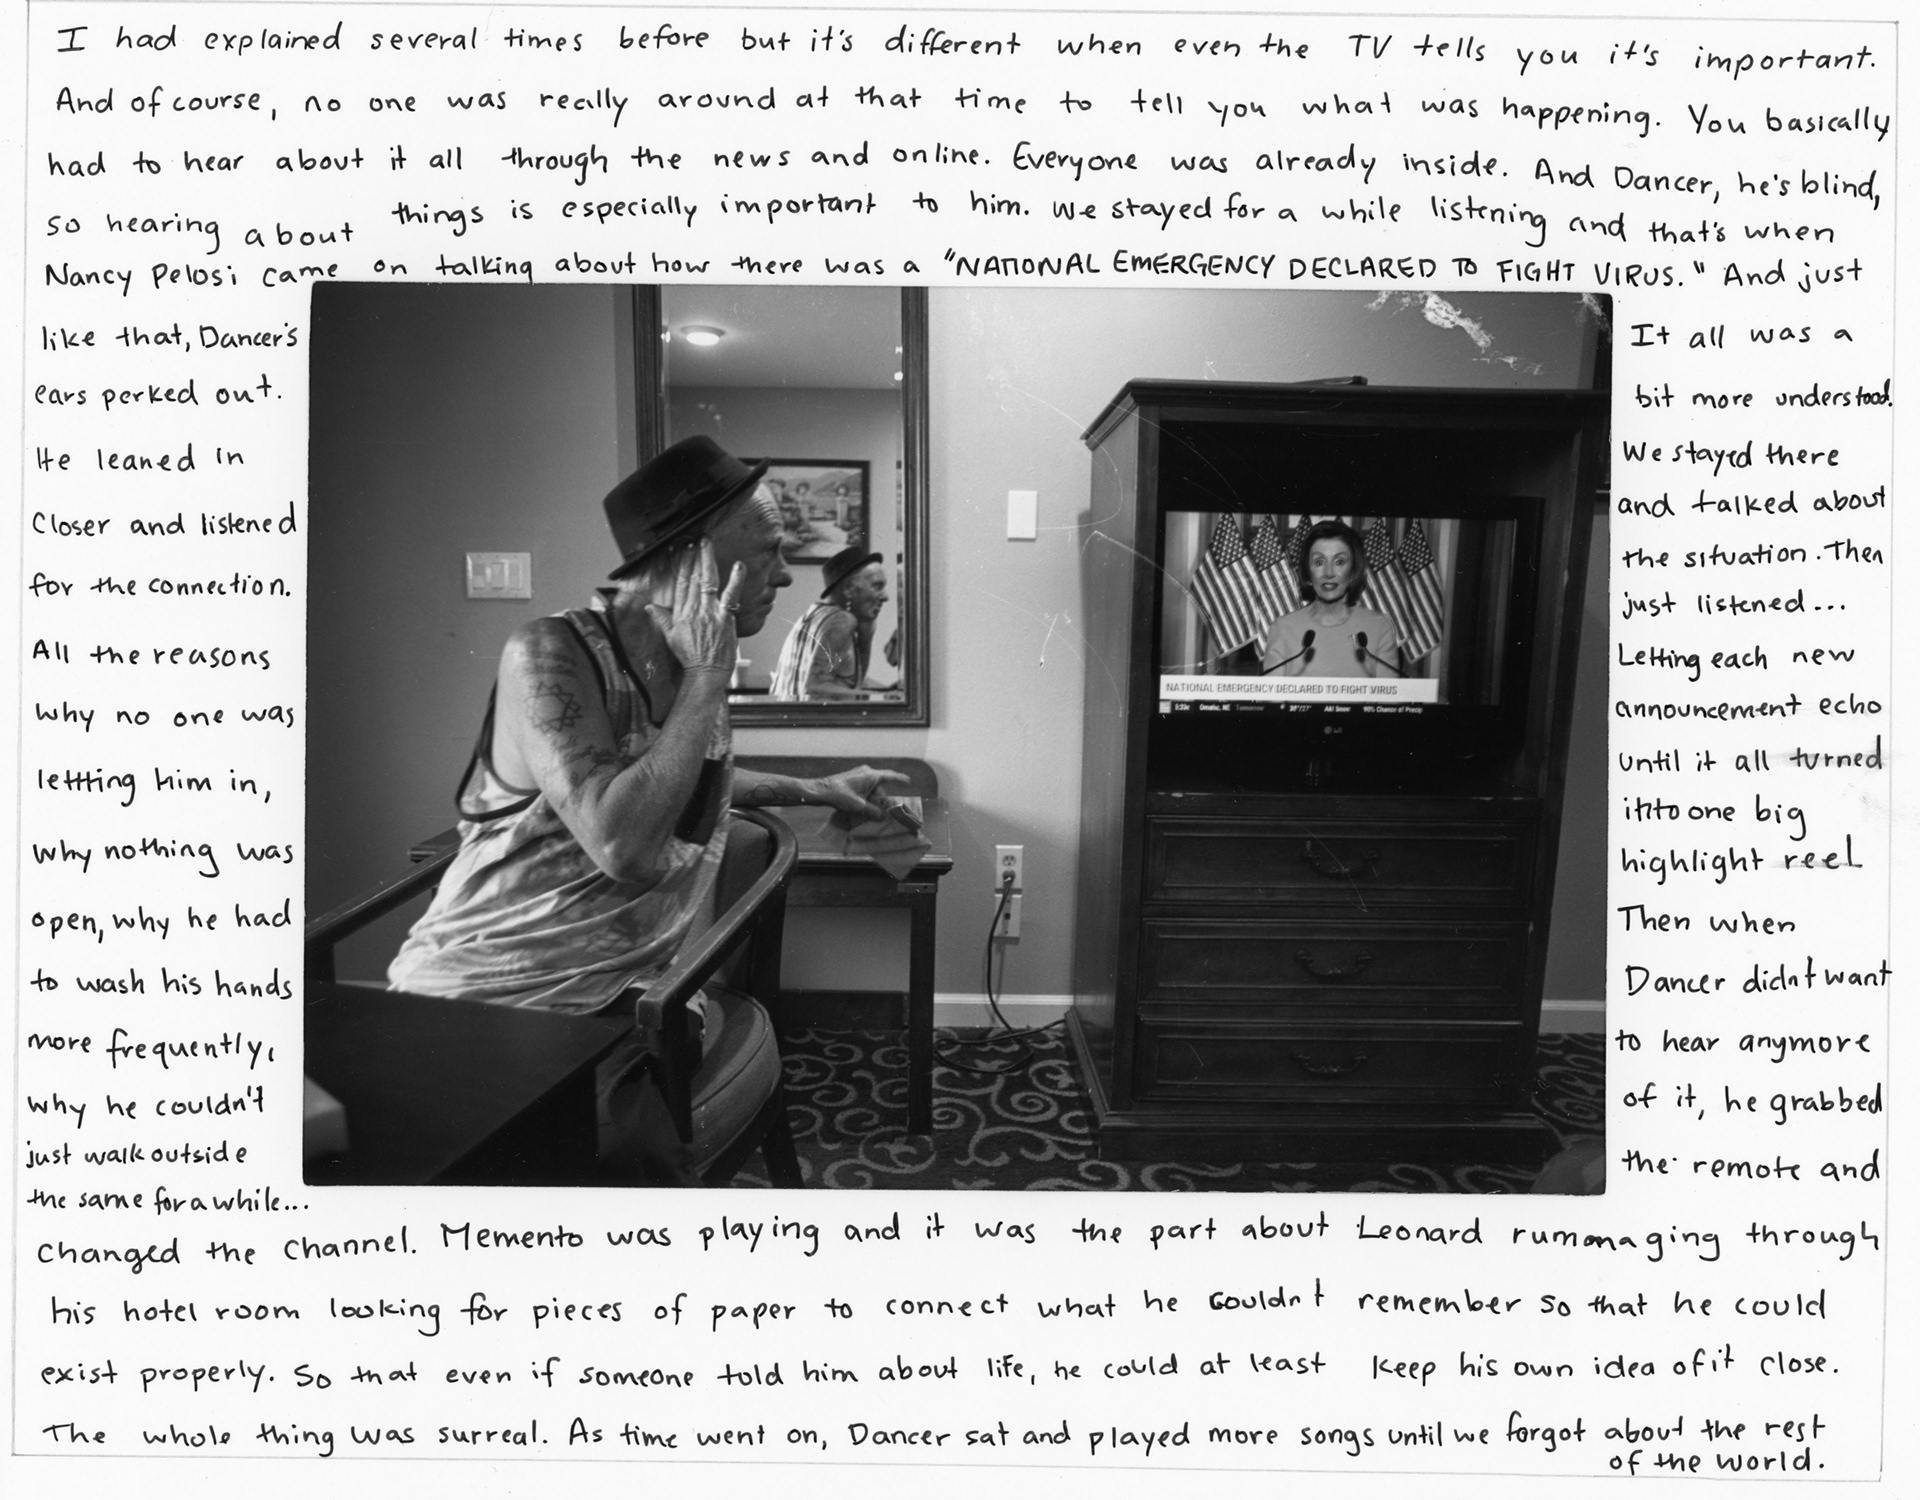 I had explained several times before but it's different when even the TV tells you it's important.
And of course, no one was really around at that time to tell you what was happening. You basically
had to hear about it all through the news and online. Everyone was already inside. And Dancer, he's blind,
so hearing about things is especially important to him. We stayed for a while listening and that's when
Nancy Pelosi came on talking about how there was a "NATIONAL EMERGENCY DECLARED TO FIGHT VIRUS." And just
like that, Dancer's
ears perked out.
He leaned in
Closer and listened
for the connection.
All the reasons
why no one was
lettting him in,
why nothing was
open, why he had
to wash his hands
more frequently,
why he couldn't
just walk outside
the same for a while...
NATIONAL EMERGENCY DECLARED TO FIGHT VIRUS
5:33c Omaha, NE Tomorrow 39°/27° AM Snow 90% Chance of Precip
LG
It all was a
bit more understood.
We stayed there
and talked about
the situation. Then
just listened...
Letting each new
announcement echo
until it all turned
into one big
highlight reel
Then when
Dancer didn't want
to hear anymore
of it, he grabbed
the remote and
changed the channel. Memento was playing and it was the part about Leonard rummaging through
his hotel room looking for pieces of paper to connect what he couldn't remember so that he could
exist properly. So that even if someone told him about life, he could at least keep his own idea of it close.
The whole thing was surreal. As time went on, Dancer sat and played more songs until we forgot about the rest
of the world.